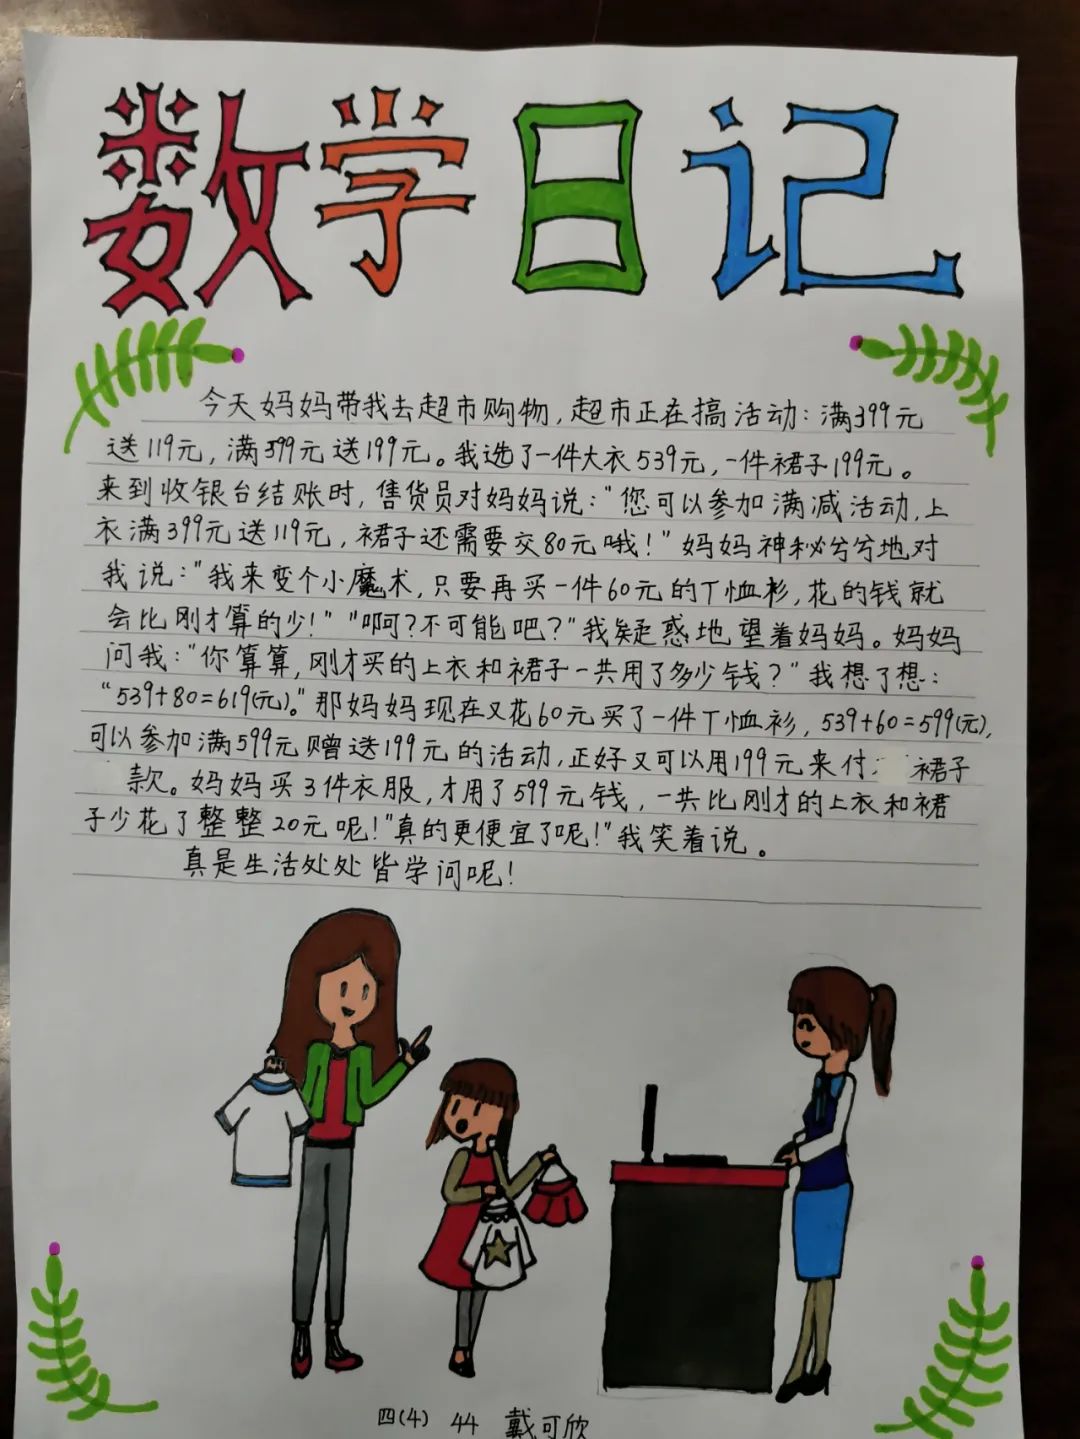 数学日记
今天妈妈带我去超市购物,超市正在搞活动:满399元
送119元,满599元送199元。我选了一件大衣539元,一件裙子199元。
来到收银台结账时,售货员对妈妈说:"您可以参加满减活动,上
衣满399元送119元,裙子还需要交80元哦!"妈妈神秘兮兮地对
我说:"我来变个小魔术,只要再买一件60元的T恤衫,花的钱就
会比刚才算的少!""啊?不可能吧?"我疑惑地望着妈妈。妈妈
问我:"你算算,刚才买的上衣和裙子一共用了多少钱?"我想了想:
"539+80=619(元)。"那妈妈现在又花60元买了一件T恤衫,539+60=599(元),
可以参加满599元赠送199元的活动,正好又可以用199元来付 裙子
款。妈妈买3件衣服,才用了599元钱,一共比刚才的上衣和裙
子少花了整整20元呢!"真的更便宜了呢!"我笑着说。
真是生活处处皆学问呢!
四(4) 44 戴可欣